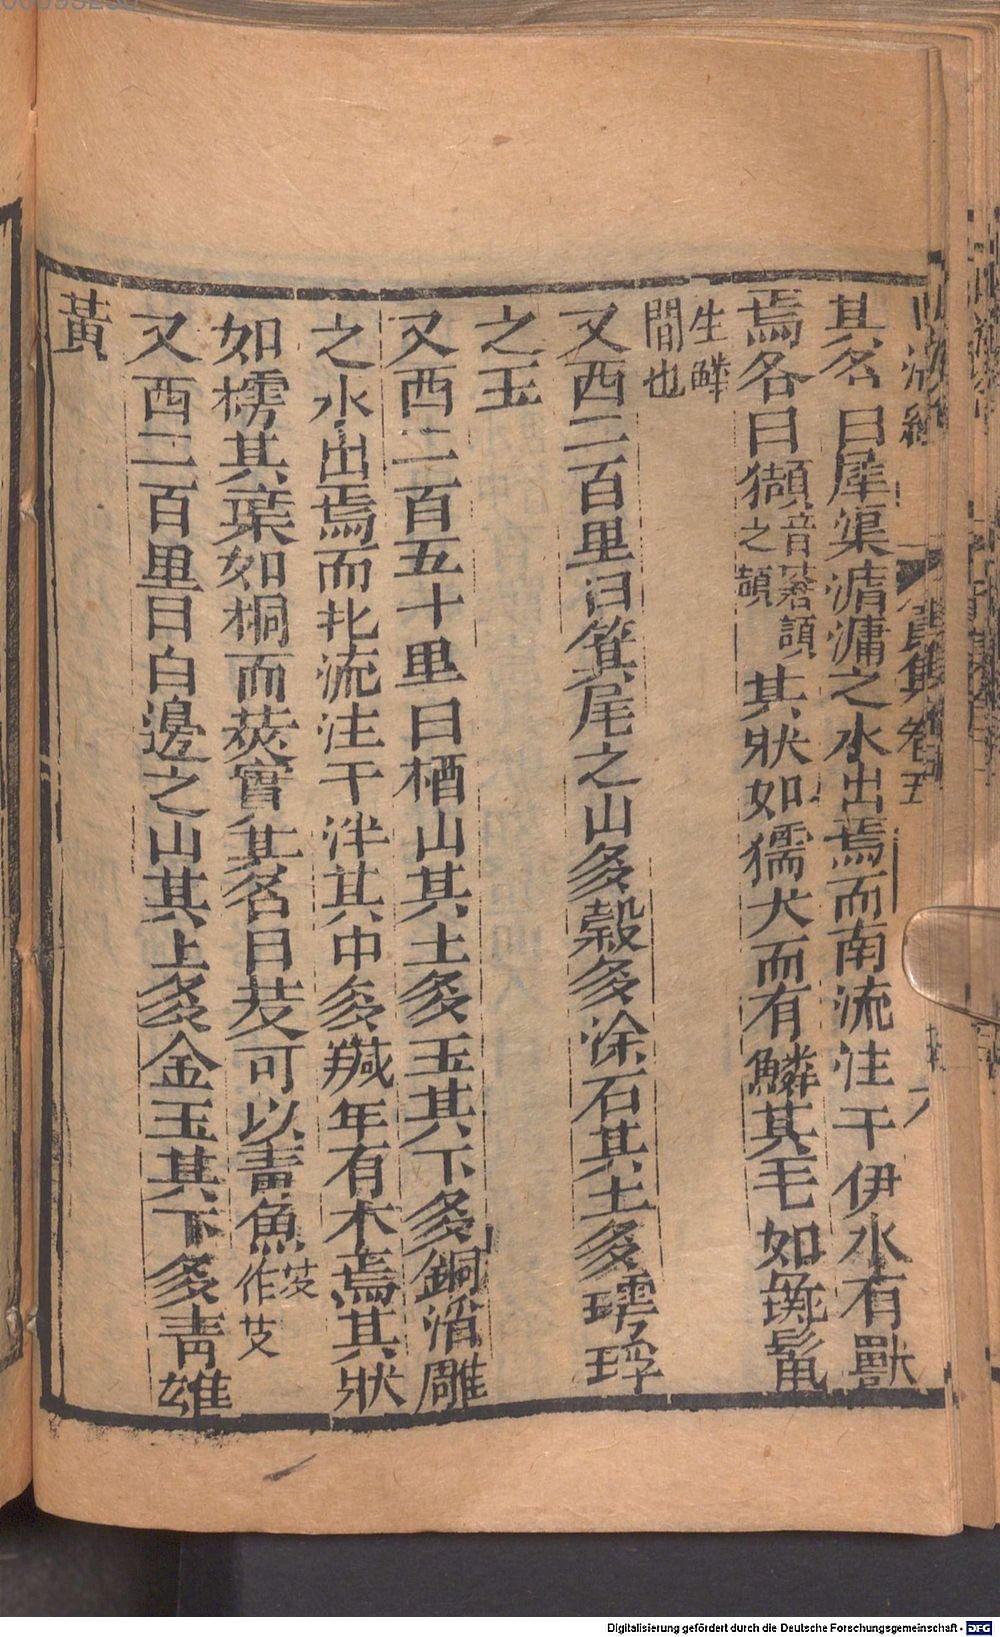 其名曰犀渠滽滽之水出焉而南流注于伊水有獸
焉名曰獭音蒼頡之頡其狀如獳犬而有鱗其毛如彘鬣
生鱗間也
又西二百里曰箕尾之山多穀多涂石其上多㻬琈
之玉
又西二百五十里曰柄山其上多玉其下多銅滔雕
之水出焉而北流注于洋其中多羬羊有木焉其狀
如樗其葉如桐而莢實其名曰茇可以毒魚茇作艾
又西二百里曰白邊之山其上多金玉其下多青雄
黃
山海經 卷五 六
Digitalisierung gefördert durch die Deutsche Forschungsgemeinschaft - DFG